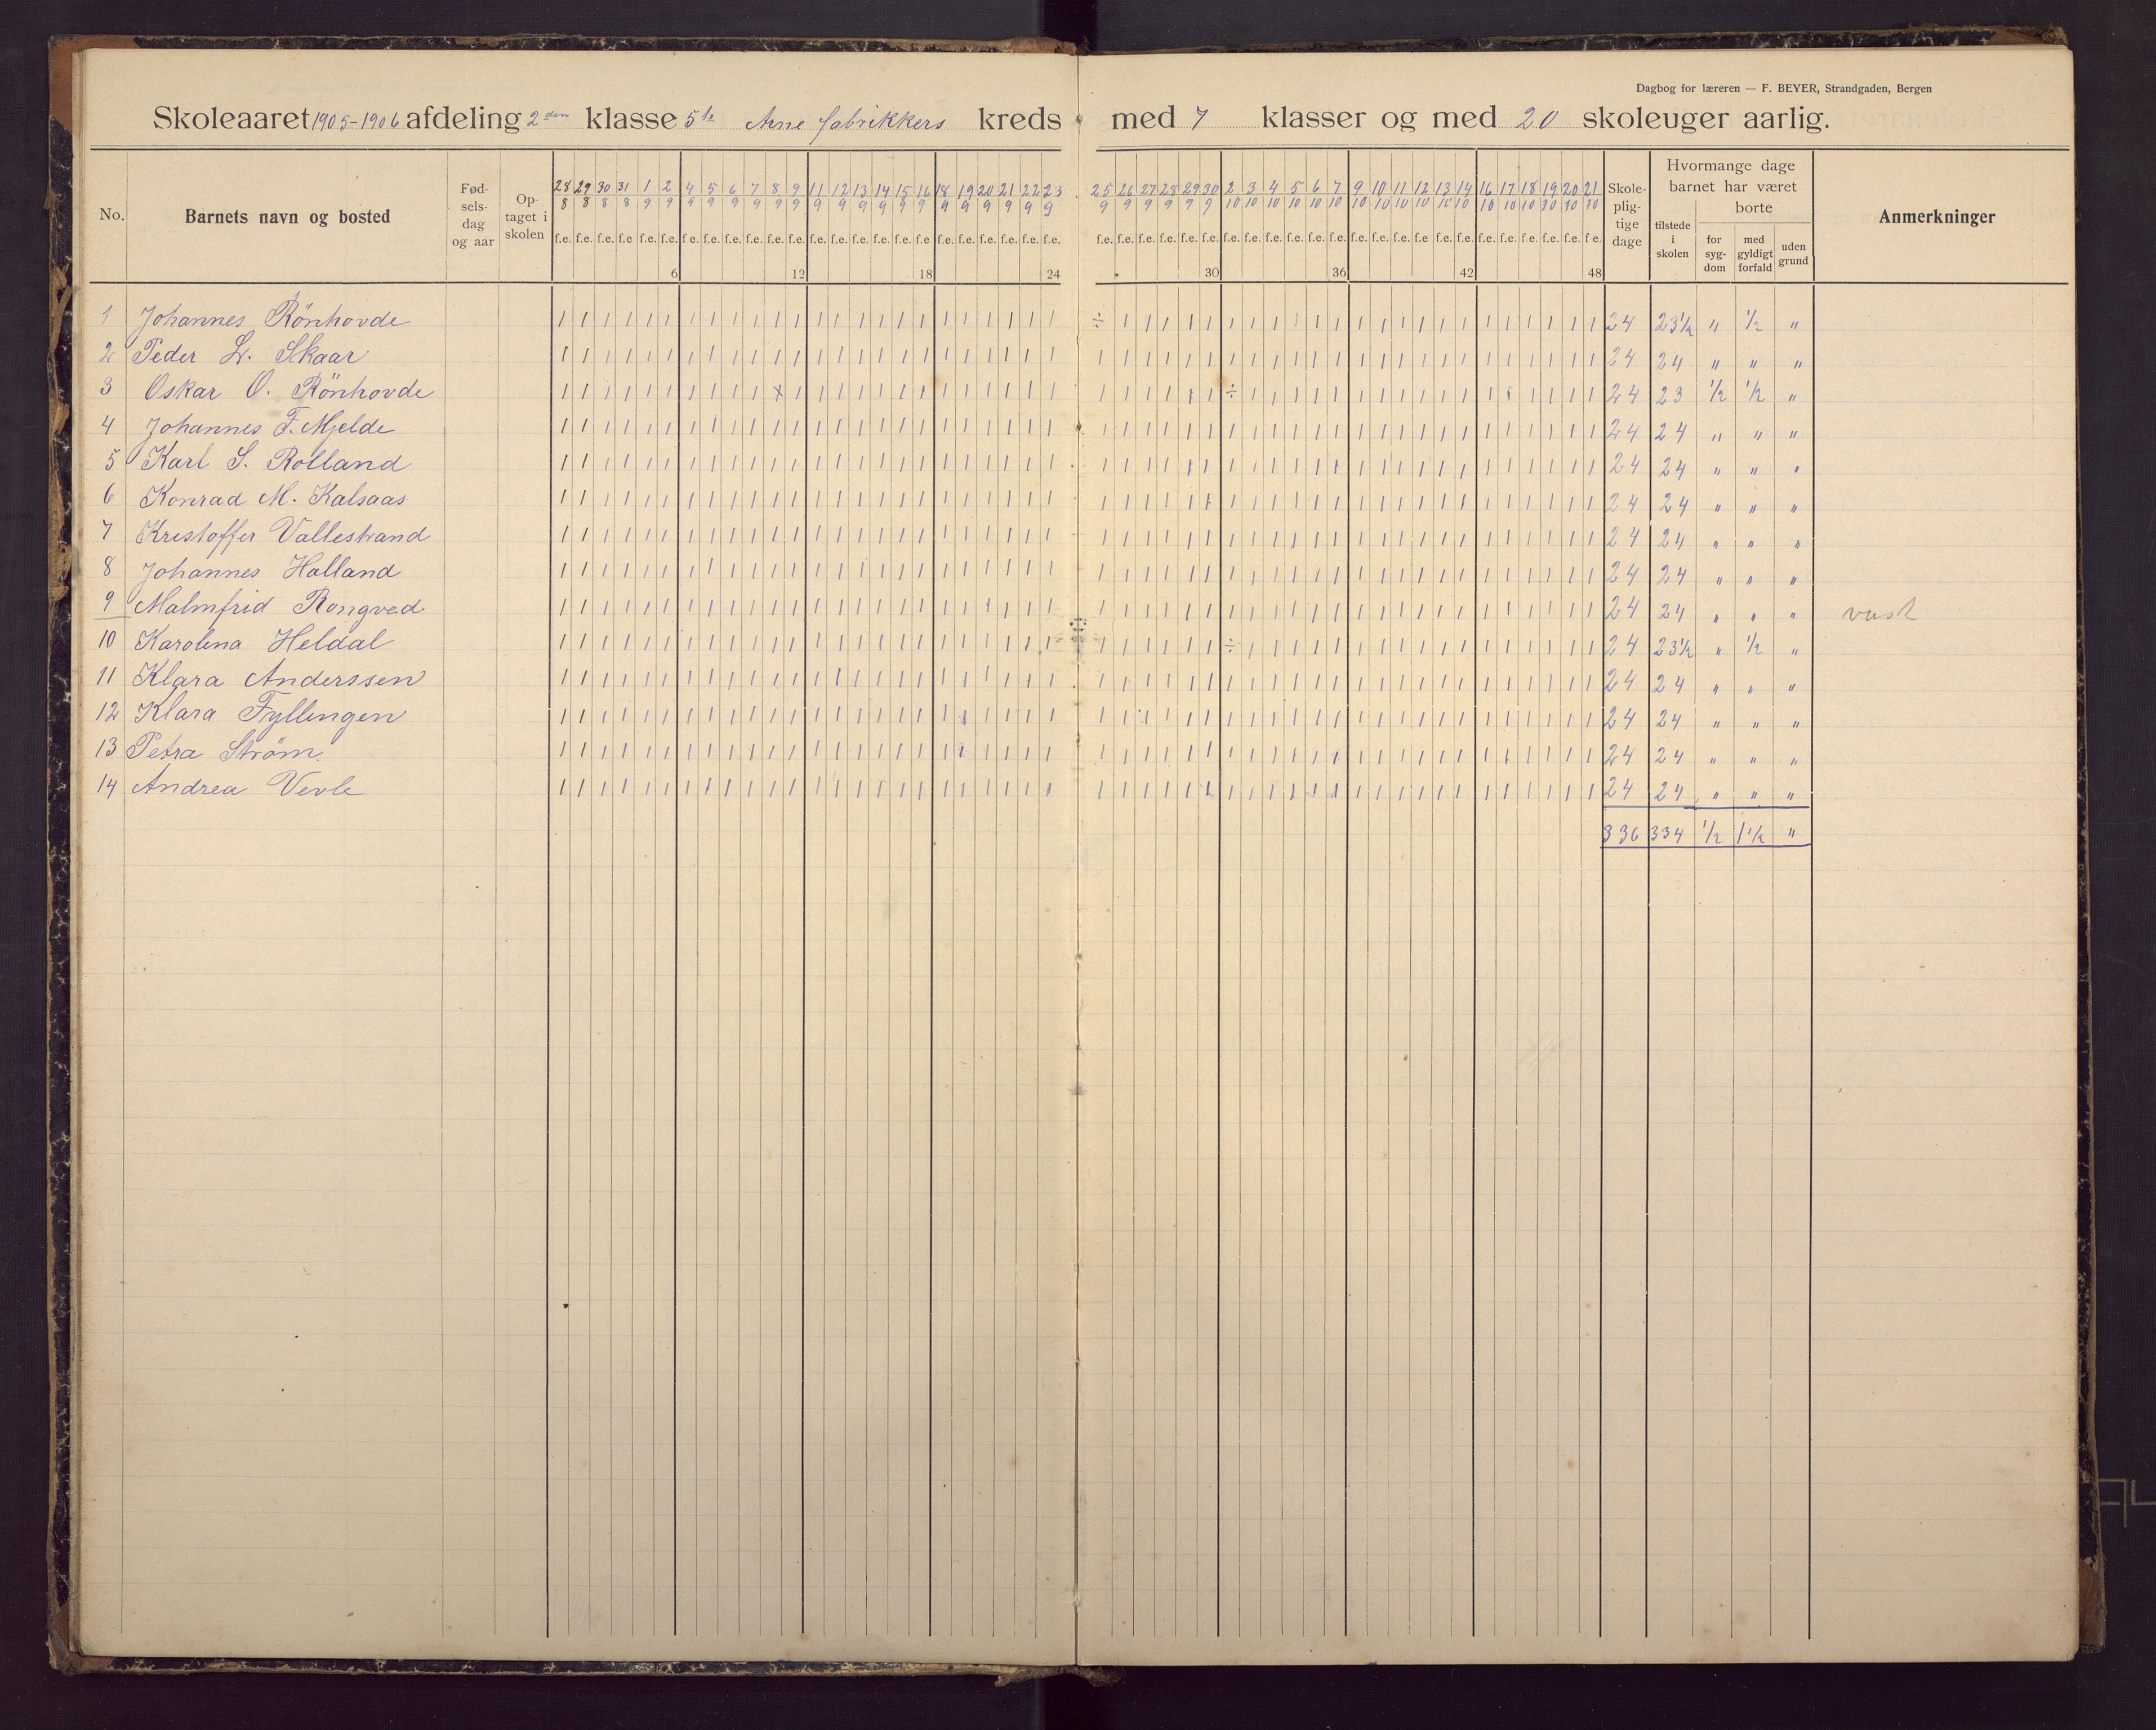 Dagbog for læreren — F. BEYER, Strandgaden, Bergen
Skoleaaret 1905-1906 afdeling 2den klasse 5te Arne fabrikkers kreds med 7 klasser og med 20 skoleuger aarlig.
No. Barnets navn og bosted Fød-selsdag og aar Op-taget i skolen Skole-plig-tige dage Hvormange dage barnet har været tilstede i skolen borte for syg-dom med gyldigt forfald uden grund Anmerkninger
28 29 30 31 1 2 4 5 6 7 8 9 11 12 13 14 15 16 18 19 20 21 22 23 25 26 27 28 29 30 2 3 4 5 6 7 9 10 11 12 13 14 16 17 18 19 20 21
8 8 8 8 9 9 9 9 9 9 9 9 9 9 9 9 9 9 9 9 9 9 9 9 9 9 9 9 9 9 10 10 10 10 10 10 10 10 10 10 10 10 10 10 10 10 10 10
f.e. f.e. f.e. f.e. f.e. f.e. f.e. f.e. f.e. f.e. f.e. f.e. f.e. f.e. f.e. f.e. f.e. f.e. f.e. f.e. f.e. f.e. f.e. f.e. f.e. f.e. f.e. f.e. f.e. f.e. f.e. f.e. f.e. f.e. f.e. f.e. f.e. f.e. f.e. f.e. f.e. f.e. f.e. f.e. f.e. f.e. f.e. f.e.
6 12 18 24 30 36 42 48
1 Johannes Rönhovde 24 23½ " ½ "
2 Peder L. Skaar 24 24 " " "
3 Oskar O. Rönhovde 24 23 ½ ½ "
4 Johannes F. Mjelde 24 24 " " "
5 Karl S. Rolland 24 24 " " "
6 Konrad M. Kalsaas 24 24 " " "
7 Kristoffer Vallestrand 24 24 " " "
8 Johannes Halland 24 24 " " "
9 Malmfrid Rongved 24 24 " " "
10 Karolina Heldal 24 23½ " ½ "
11 Klara Anderssen 24 24 " " "
12 Klara Fyllingen 24 24 " " "
13 Petra Ström. 24 24 " " "
14 Andrea Vevle 24 24 " " "
336 334 ½ 1½ "